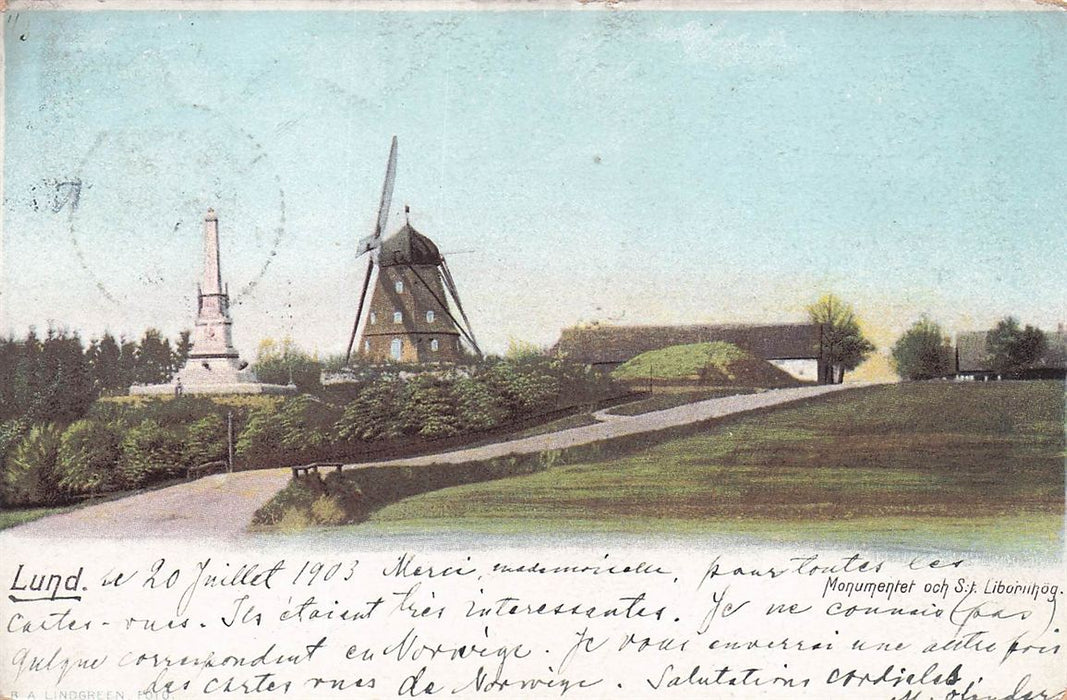 Lund. le 20 Juillet 1903 Merci, mademoiselle, pour toutes les
Monumentet och S:t. Liborihög.
cartes-vues. Ils étaient très interessantes. Je ne connais (pas)
quelque correspondent en Norwège. Je vous enverrai une autre fois
des cartes vues de Norwège. Salutations cordiales
M.
B. A. LINDGREEN, FOTO.